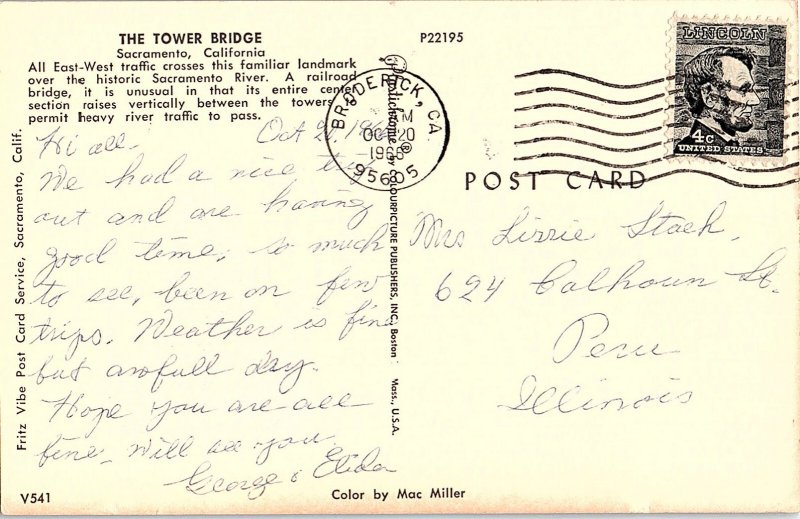 THE TOWER BRIDGE
Sacramento, California
All East-West traffic crosses this familiar landmark
over the historic Sacramento River. A railroad
bridge, it is unusual in that its entire center
section raises vertically between the towers
permit heavy river traffic to pass.
P22195
BRODERICK, CA.
OCT 20
1968
95605
LINCOLN
4c
UNITED STATES
POST CARD
Oct 20, 1968
Hi all.
We had a nice trip
out and are having
good time, so much
to see, been on few
trips. Weather is fine
but awfull dry.
Hope you are all
fine. Will see you.
George & Elida
Mrs Lizzie Stach,
624 Calhoun St.
Peru
Illinois
Fritz Vibe Post Card Service, Sacramento, Calif.
Plastichrome ® COLOURPICTURE PUBLISHERS, INC. Boston Mass., U.S.A.
V541
Color by Mac Miller